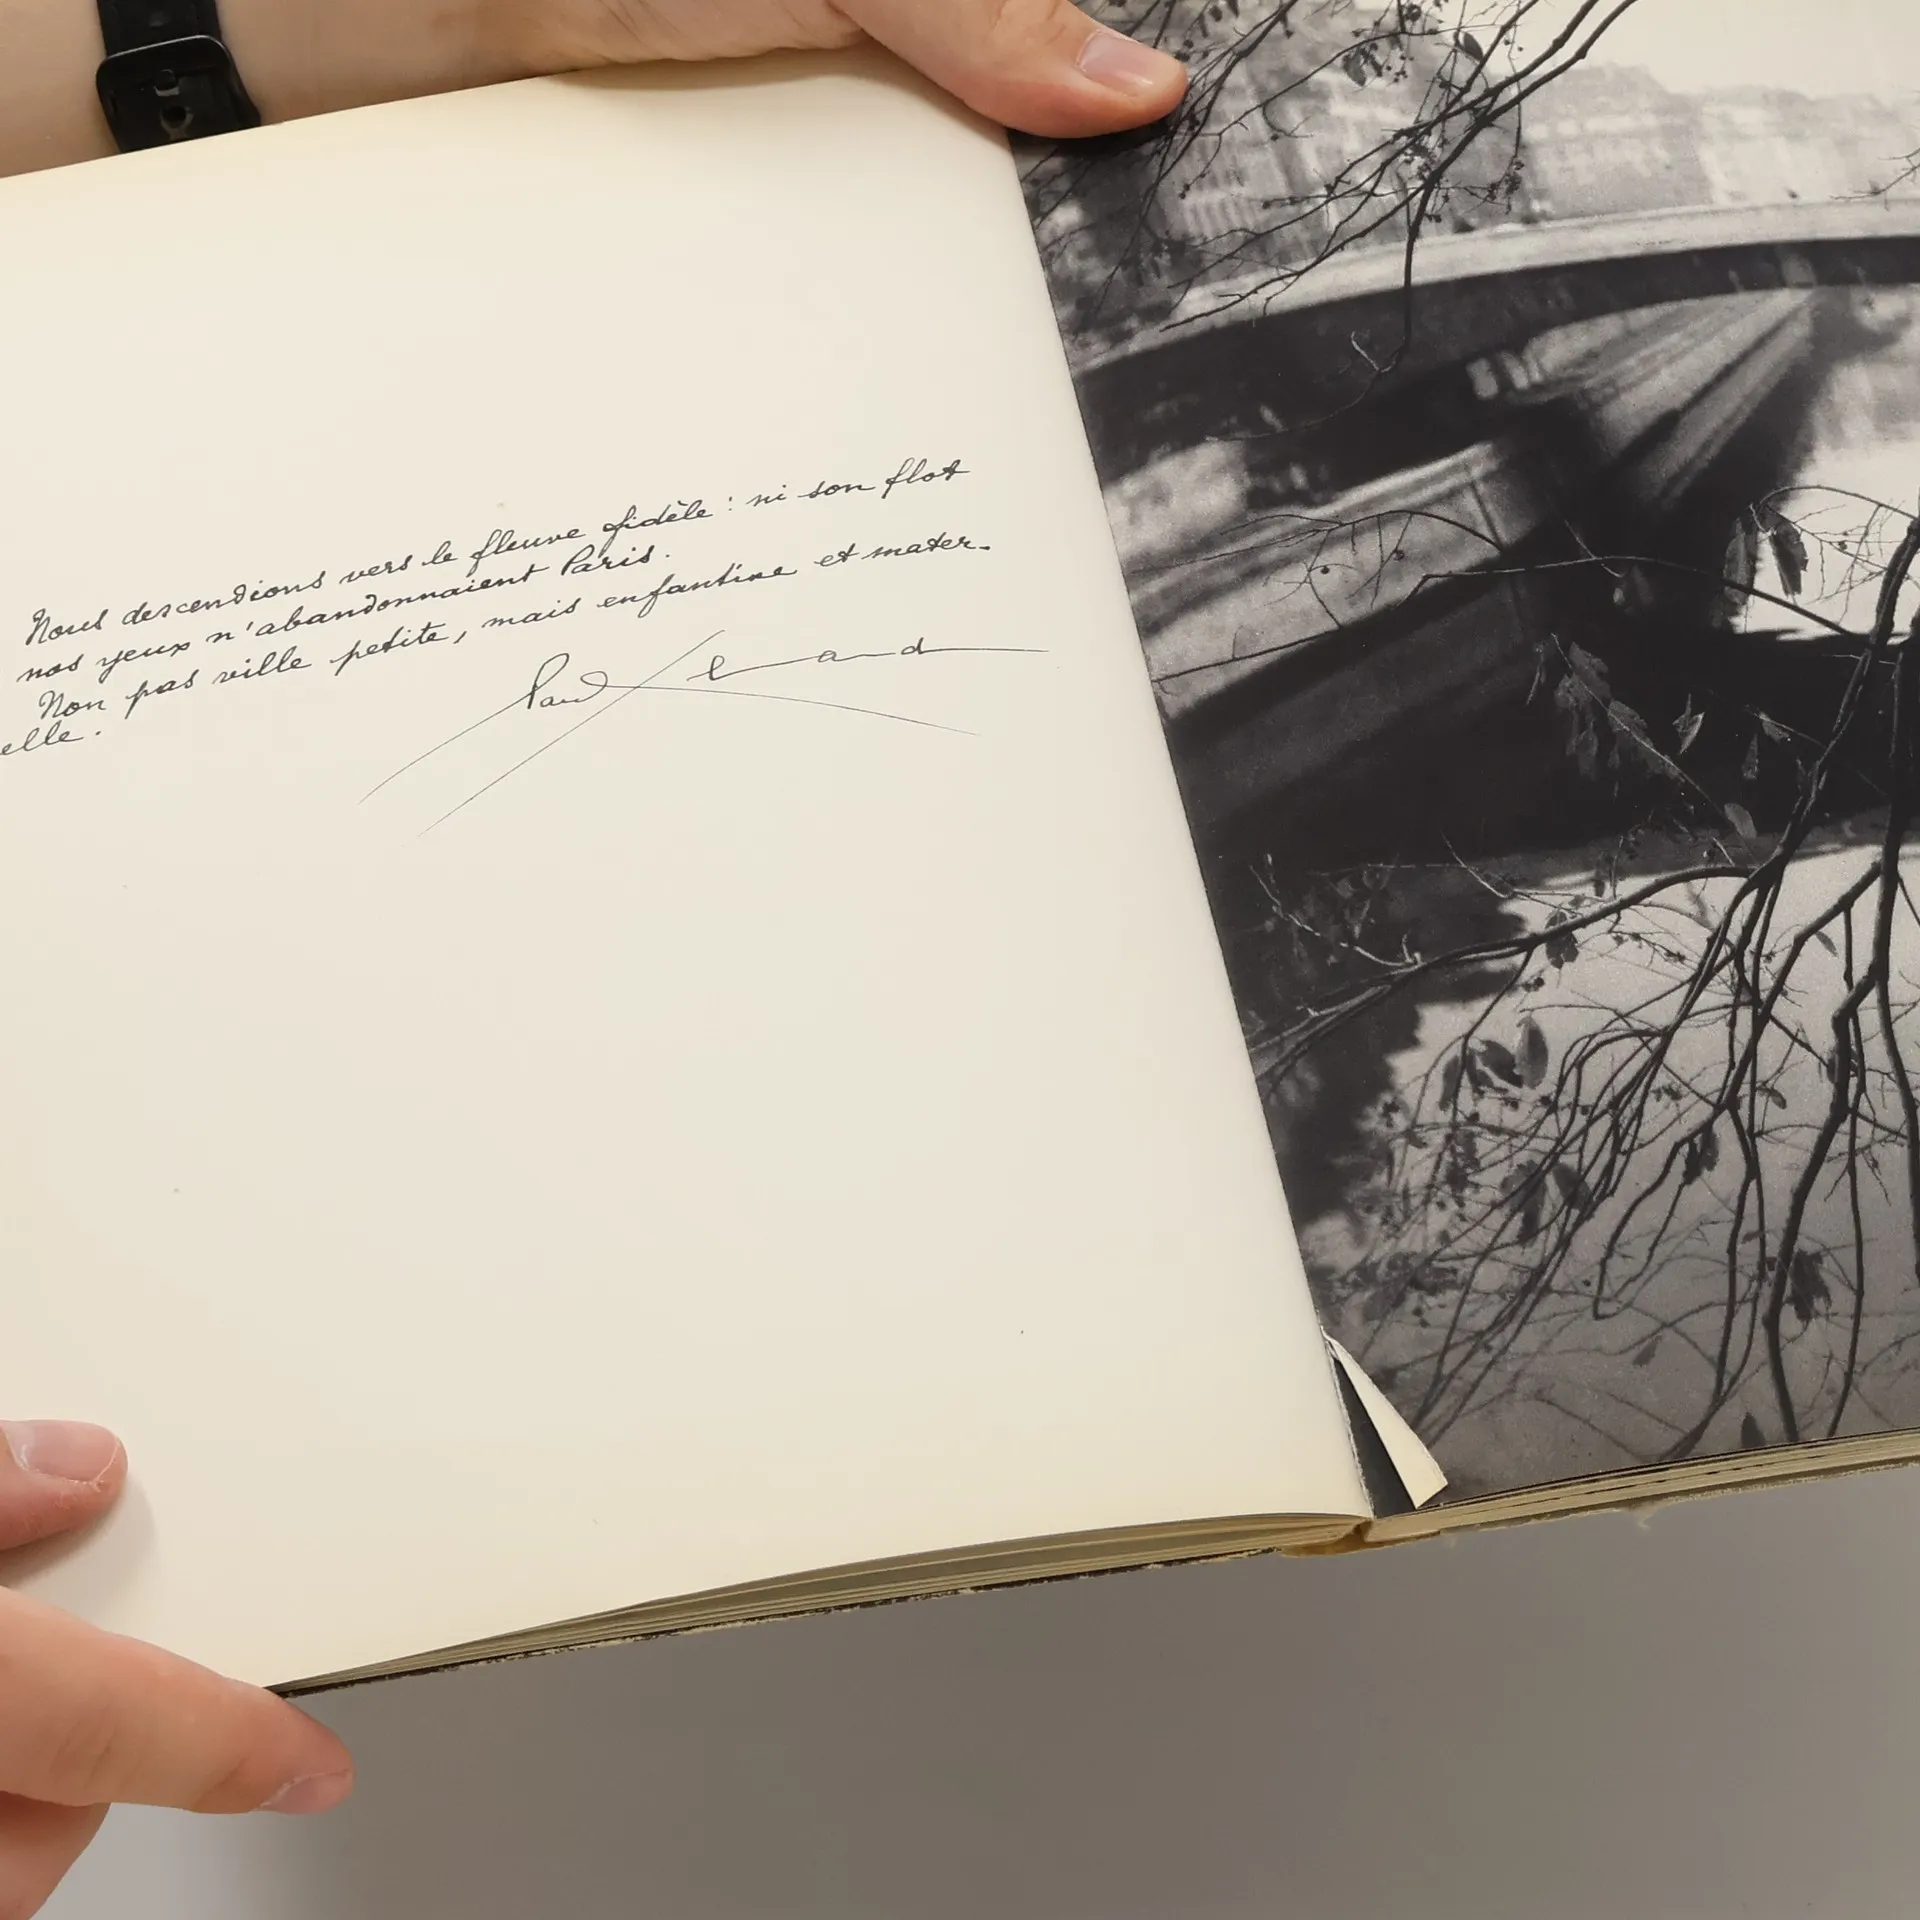 Nous descendions vers le fleuve fidèle : ni son flot
nos yeux n'abandonnaient Paris.
Non pas ville petite, mais enfantine et mater-
elle.
Paul Eluard